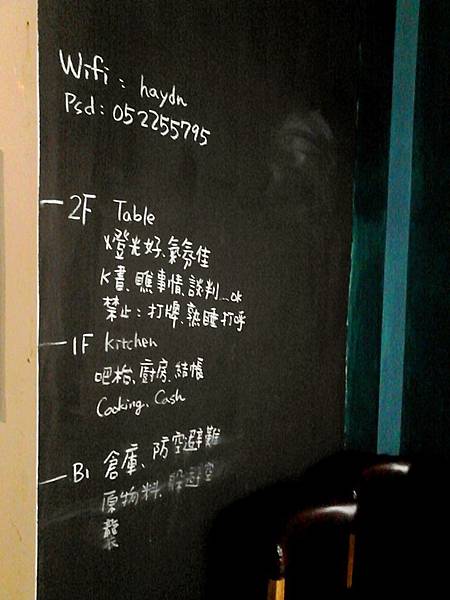 Wifi : haydn
Psd : 05 2255795
2F Table
燈光好、氣氛佳
K書、瞧事情、談判...ok
禁止：打牌、熟睡打呼
1F kitchen
吧枱、廚房、結帳
Cooking、Cash
B1 倉庫、防空避難
原物料、躲避空
襲